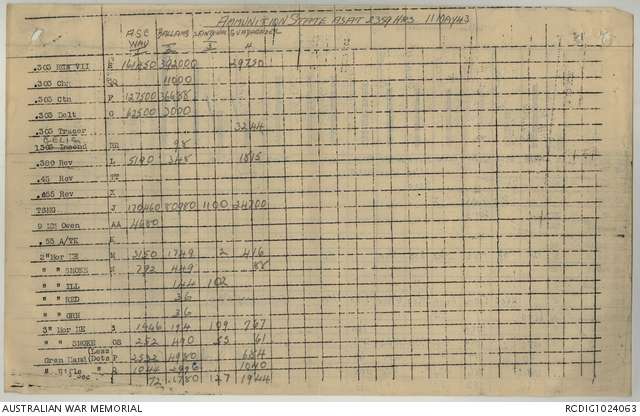 AMMUNITION STATE AS AT 2359 HRS 11 MAY 43
ASC BALLAMS SANDUNA GUNDAGNDER
WAU
1 2 3 4
.303 VII 392000 29750
.303 Chg 11000
.303 Ctn F 127500 36688
.303 Belt G 62500 3000
.303 Tracer 3244
1303 Incend RR 98
.380 Rev L 5190 348 1815
.45 Rev TT
.455 Rev X
TSMG J 130460 80980 1100 24700
9 MM Owen AA 4680
.55 A/TK K
2" Mor HE M 3150 1749 2 416
" " SMOKE N 792 449 88
" " ILL 144 102
" " RED 36
" " GRN 36
3" Mor HE S 1966 194 109 767
" " SMOKE OS 252 490 53 61
Gren Hand (Less Dets P 2532 4980 684
" Rifle " R 1044 1040
72 1780 127 1944
AUSTRALIAN WAR MEMORIAL
RCDIG1024063